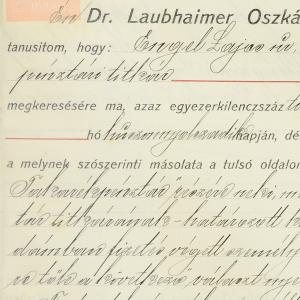 Én Dr. Laubhaimer Oszká
tanusitom, hogy: Engel Lajos úr,
pénztári titkár
megkeresésére ma, azaz egyezerkilenczszáz
hó huszonnyolczadik napján, dé
a melynek szószerinti másolata a tulsó oldalon
Takarékpénztár" részére neki, m
tár titkárának - határozott k
dámban fizetés végett személy
és tőle a következő választ nye